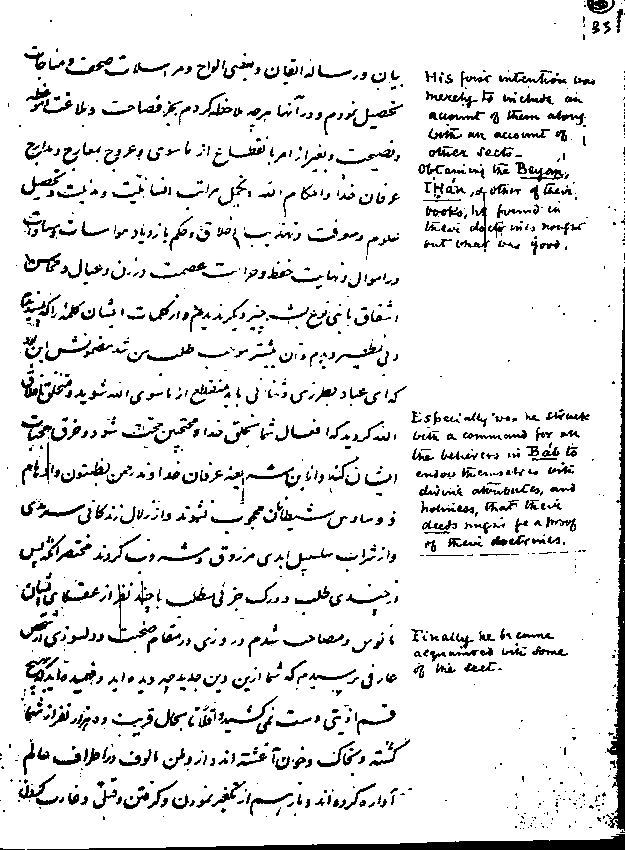 33
بیان و رساله ایقان و بعضی الواح و مراسلات صحت و مناجات
تحصیل نمودم و در آنها هرچه ملاحظه کردم بجز فصاحت و بلاغت
و نصیحت و بغیر از امر بانقطاع از ماسوی و عروج معارج و مدارج
عرفان خدا و احکام الله و تجمل مراتب انسانیت و مدنیت و تحصیل
علوم و معرفت و تهذیب اخلاق و حکم بازدیاد مواسات و مساوات
در اموال و نهایت حفظ و حراست عصمت و زن و عیال و
اشفاق بابنی نوع بشر چیز دیگر ندیدم و از کلمات ایشان کلمه را که
دیدم و آن بیشتر موجب طلب من شد مضمونش این بود
که ای عباد بطرزی باید منقطع از ماسوی الله شوید و متخلق باخلاق
الله گردید که افعال شما بخلق خدا و محتجبین حجت شود و خرق حجبات
ایشان کند و از این عرفان خداوند رحمن
و وساوس شیطان محجوب نشوند و از زلال زندگانی سرمدی
و از شراب سلسبیل ابدی مرزوق و گردند مختصر آنکه پس
از چندی طلب و درک جزئی مطلب با چند نفر از عقلای ایشان
مانوس و مصاحب شدم در روزی در مقام صحبت و دلسوزی از شخص
عارفی پرسیدم که شما ازین دین جدید چه دیده اید و فهمیده اید که هیچ
قسم اذیتی دست نمی کشید و اقلاً تا بحال قریب دو هزار نفر از شما
کشته و بخاک و خون آغشته اند و از وطن مالوف در اطراف عالم
آواره کرده اند و باز هم از تکفیر نمودن و گرفتن و قتل و غارت
His first intention was
merely to include an
account of them along
with an account of
other sects.
Obtaining the Beyan,
Ikán, & other of their
books, he found in
their doctrines nought
but what was good.
Especially was he struck
with a command for all
the believers in Báb to
endow themselves with
divine attributes, and
holiness, that their
deeds might be a proof
of their doctrines.
Finally he became
acquainted with some
of the sect.